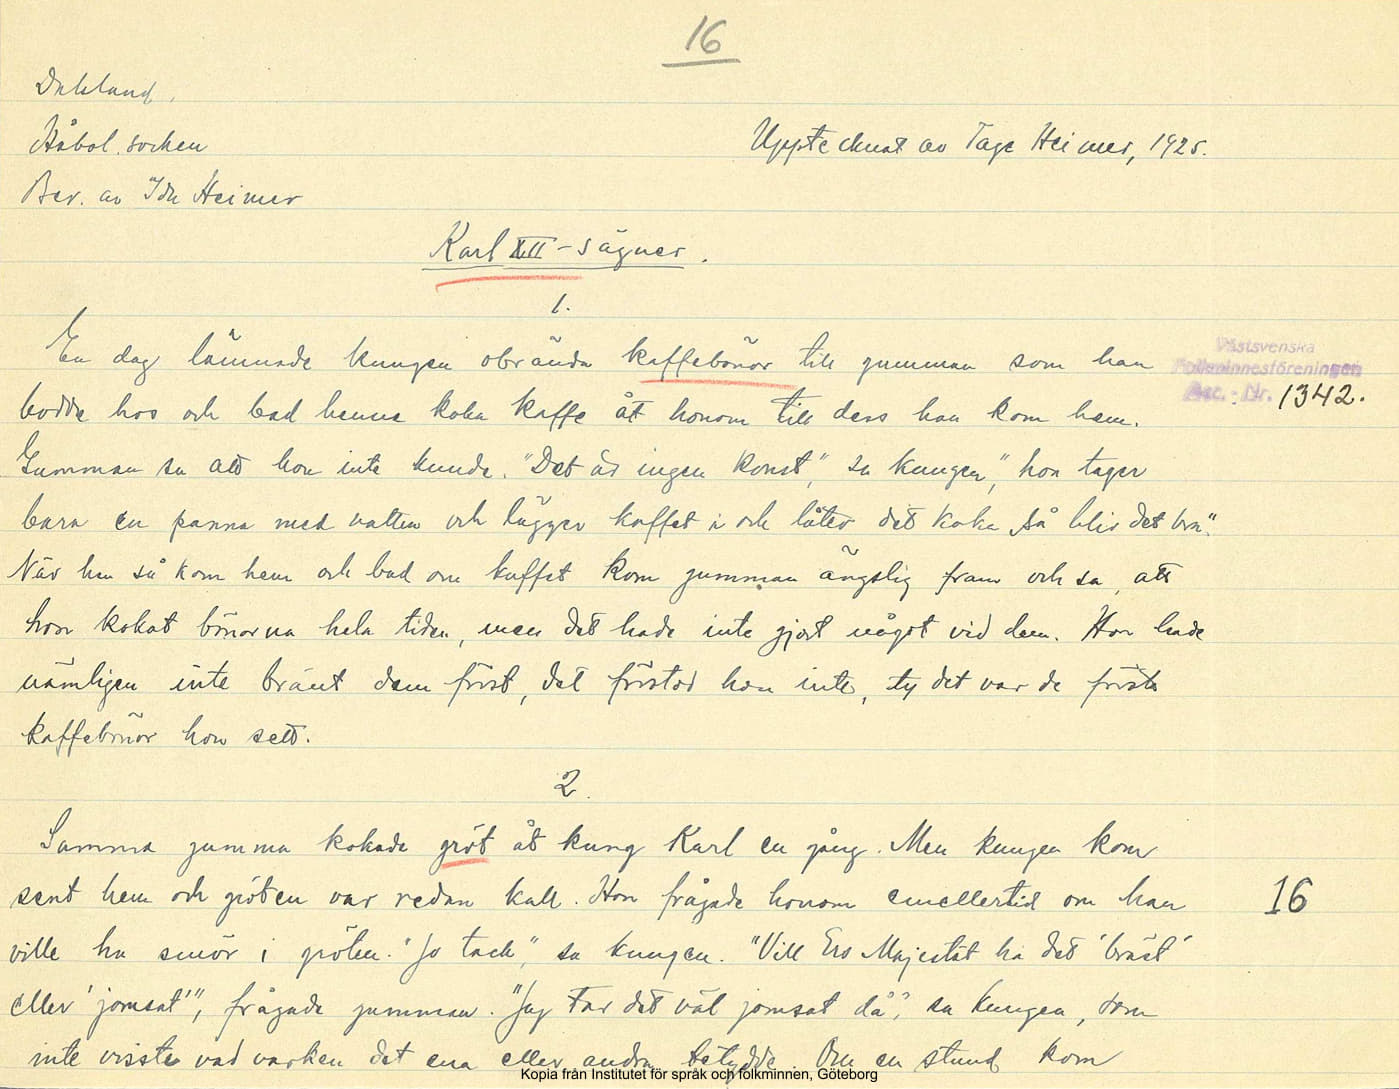 16
Dalsland,
Håbol socken
Uppteknat av Tage Heimer, 1925.
Ber. av Ida Heimer
Karl XII-sägner.
1.
En dag lämnade kungen obrända kaffebönor till gumman som han
Västsvenska
Folkminnesföreningen
Acc.-Nr. 1342.
bodde hos och bad henne koka kaffe åt honom till dess han kom hem.
Gumman sa att hon inte kunde. "Det är ingen konst", sa kungen", hon tager
bara en panna med vatten och lägger kaffet i och låter det koka så blir det bra".
När han så kom hem och bad om kaffet kom gumman ängslig fram och sa, att
hon kokat bönorna hela tiden, men det hade inte gjort något vid dem. Hon hade
nämligen inte bränt dem först, det förstod hon inte, ty det var de första
kaffebönor hon sett.
2.
Samma gumma kokade gröt åt kung Karl en gång. Men kungen kom
sent hem och gröten var redan kall. Hon frågade honom emellertid om han
16
ville ha smör i gröten. "Jo tack", sa kungen. "Vill Ers Majestät ha det 'bräst'
eller 'jomsat'", frågade gumman. "Jag tar det väl jomsat då", sa kungen, som
inte visste vad varken det ena eller andra betydde. Om en stund kom
Kopia från Institutet för språk och folkminnen, Göteborg